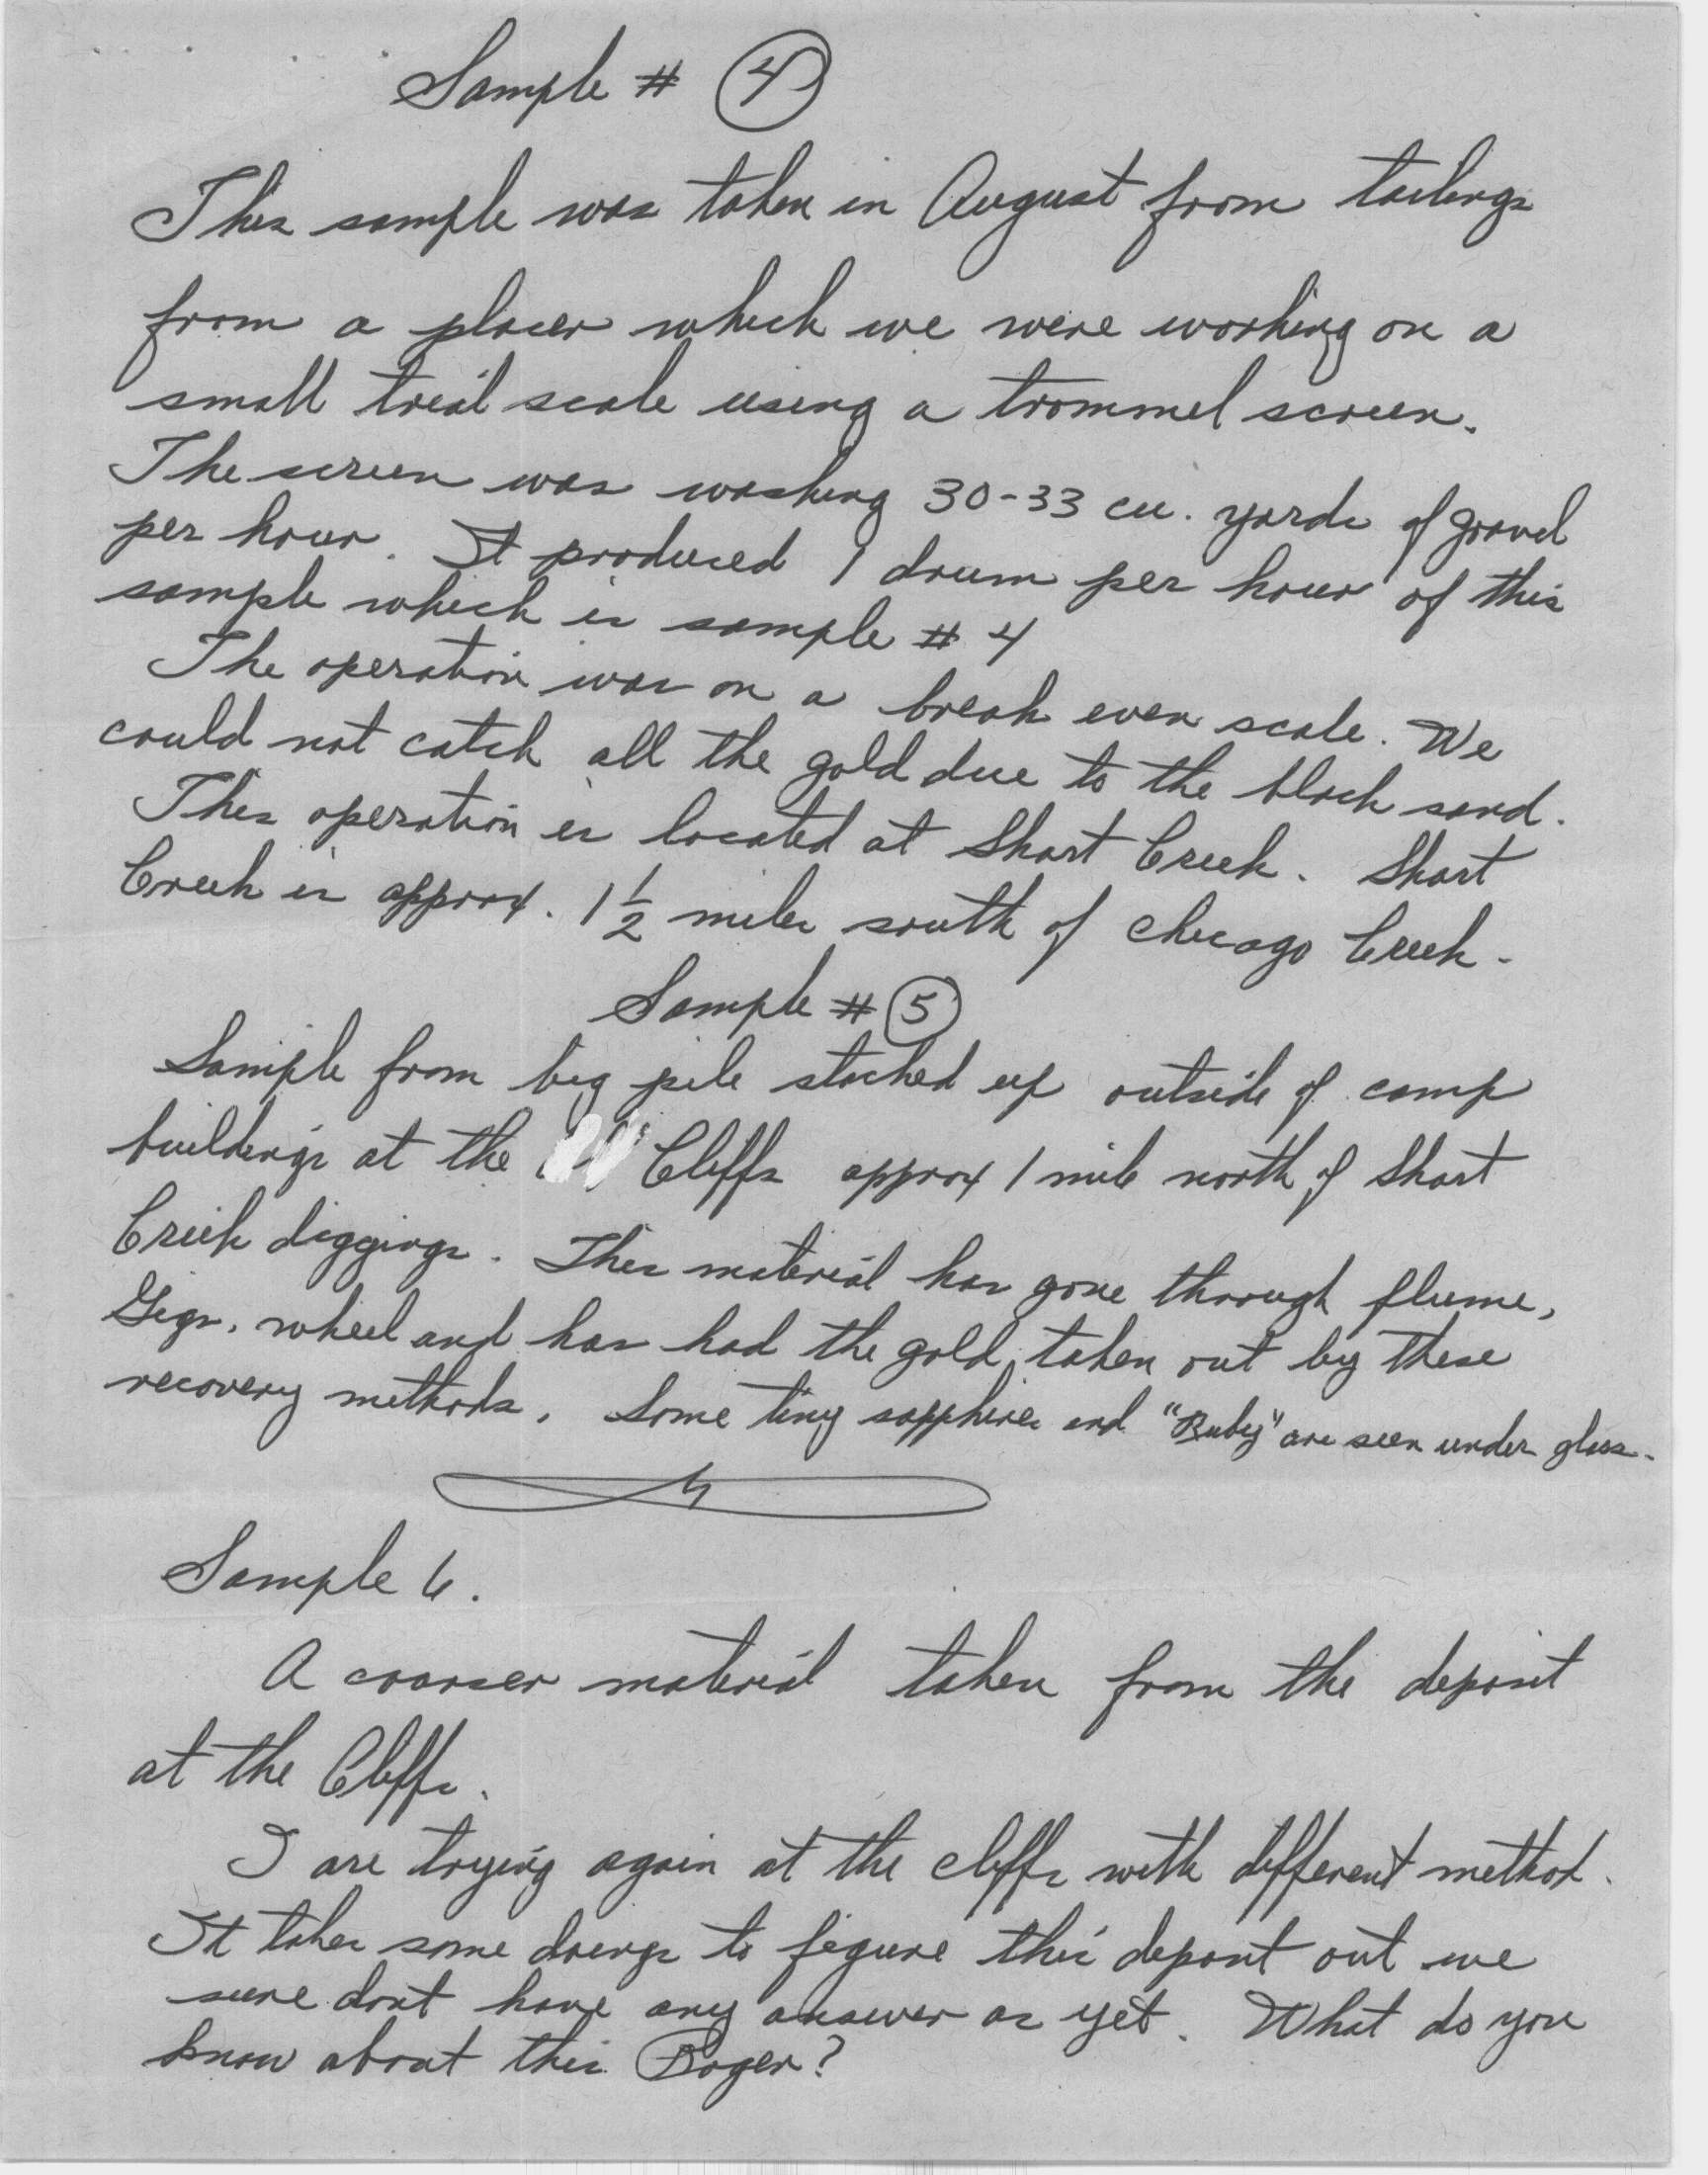 Sample # 4
This sample was taken in August from tailings
from a placer which we were working on a
small trial scale using a trommel screen.
The screen was washing 30-33 cu. yards of gravel
per hour. It produced 1 drum per hour of this
sample which is sample # 4
The operation was on a break even scale. We
could not catch all the gold due to the black sand.
This operation is located at Short Creek. Short
Creek is approx. 1 1/2 miles south of Chicago Creek.
Sample # 5
Sample from big pile stacked up outside of camp
buildings at the Cliffs approx 1 mile north of Short
Creek diggings. This material has gone through flume,
Gigs, wheel and has had the gold taken out by these
recovery methods. Some tiny sapphires and "Ruby" are seen under glass.
Sample 6.
A coarser material taken from the deposit
at the Cliffs.
I are trying again at the cliffs with different method.
It takes some doings to figure this deposit out we
sure dont have any answer as yet. What do you
know about this Roger?